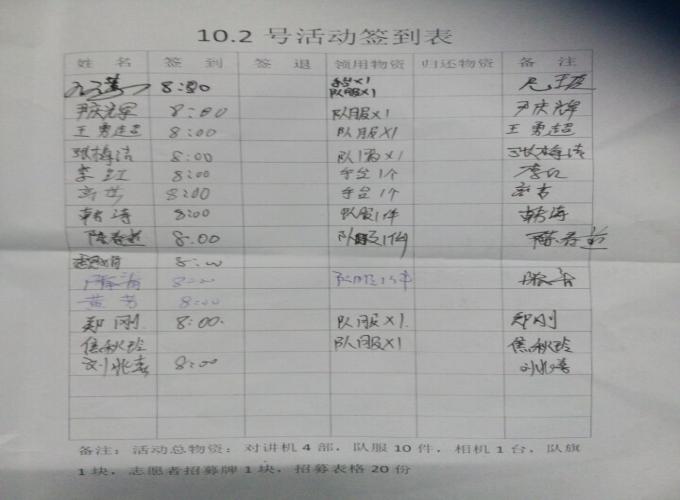 10.2 号活动签到表
姓 名 签 到 签 退 领用物资 归还物资 备 注
8:00 手台×1 队服×1
尹庆辉 8:00 队服×1 尹庆辉
王勇超 8:00 队服×1 王勇超
张梅洁 8:00 队服×1 张梅洁
李红 8:00 手台1个 李红
8:00 手台1个
韩涛 8:00 队服1件 韩涛
陈春 8:00 队服1件 陈春
8:00
8:00 队服1件
黄芳 8:00
郑刚 8:00 队服×1 郑刚
焦秋玲 队服×1 焦秋玲
刘兆喜 8:00 刘兆喜
备注：活动总物资：对讲机 4 部，队服 10 件，相机 1 台，队旗
1 块，志愿者招募牌 1 块，招募表格 20 份